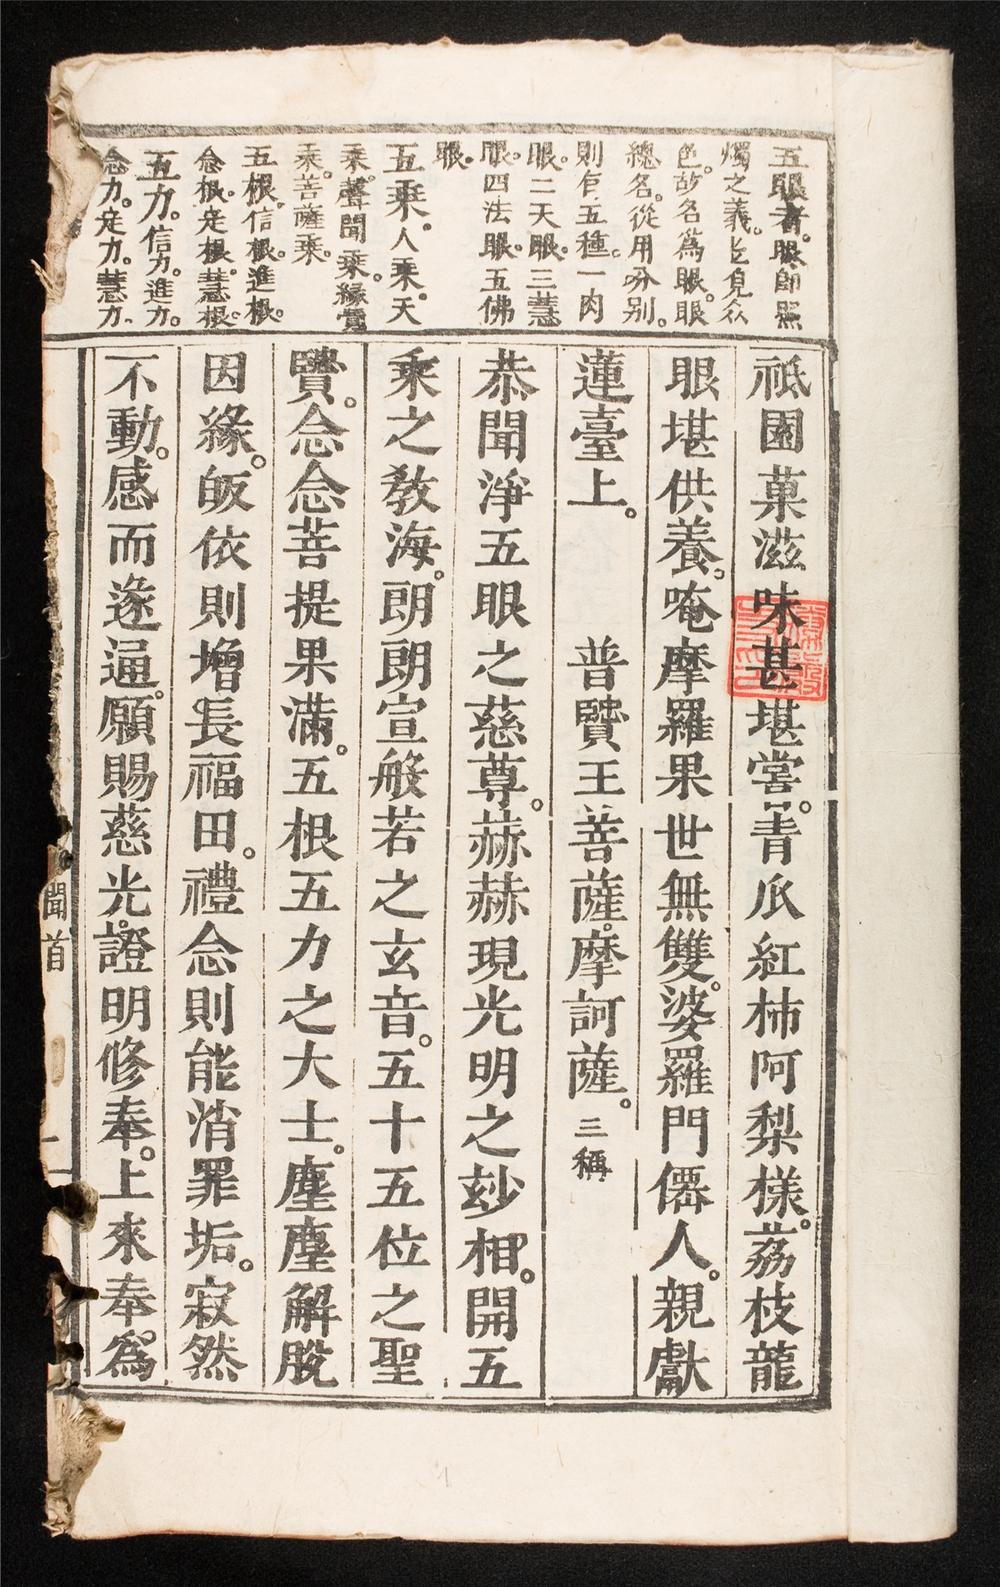 五眼者。眼卽照
燭之義。能見眾
色。故名爲眼。眼
總名。從用分別。
則有五種。一肉
眼。二天眼。三慧
眼。四法眼。五佛
眼。
五乘。人乘。天
乘。聲聞乘。緣覺
乘。菩薩乘。
五根。信根。進根。
念根。定根。慧根。
五力。信力。進力。
念力。定力。慧力。
祗園菓滋味甚堪嘗。青瓜紅柿阿梨樣。荔枝龍
眼堪供養。唵摩羅果世無雙。婆羅門僊人。親獻
蓮臺上。 普賢王菩薩。摩訶薩。三稱
恭聞淨五眼之慈尊。赫赫現光明之玅相。開五
乘之敎海。朗朗宣般若之玄音。五十五位之聖
賢。念念菩提果滿。五根五力之大士。塵塵解脫
因緣。皈依則增長福田。禮念則能消罪垢。寂然
不動。感而遂通。願賜慈光。證明修奉。上來奉爲
聞首